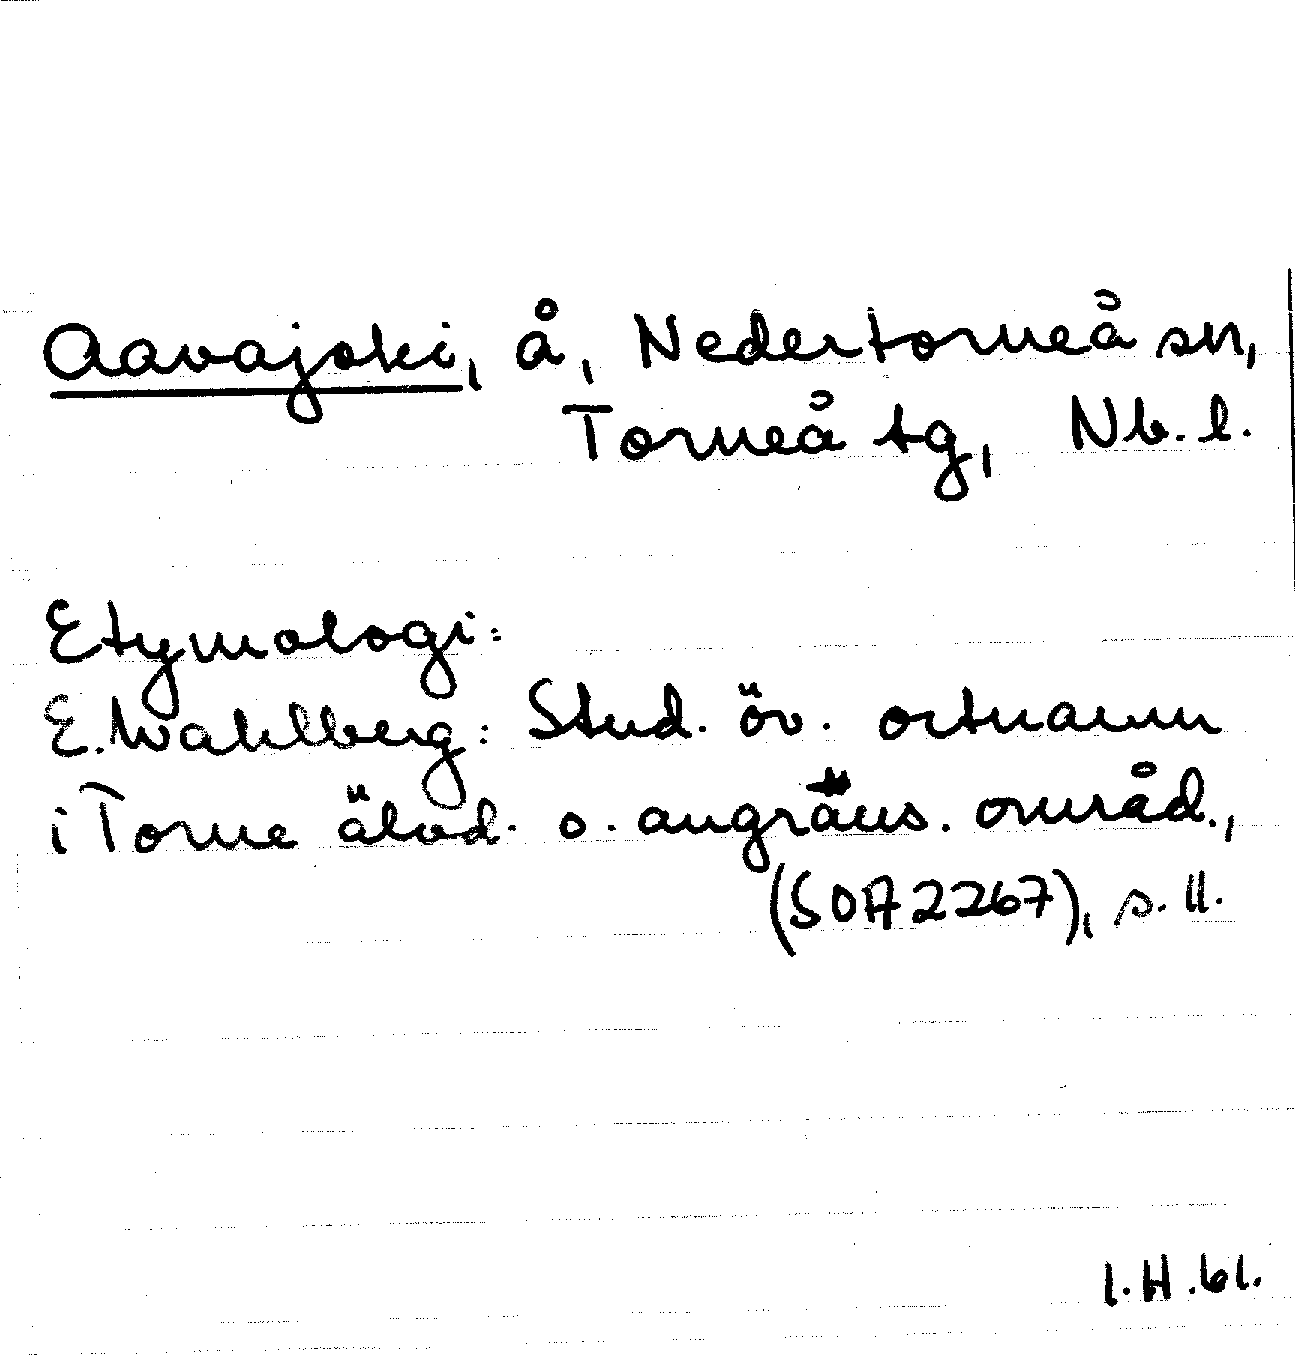 Aavajoki, å, Nedertorneå sn,
Torneå tg, Nb. l.
Etymologi:
E. Wahlberg: Stud. öv. ortnamn
i Torne älvd. o. angräns. områd.,
(SOA 2267), s. 11.
I.H. 61.